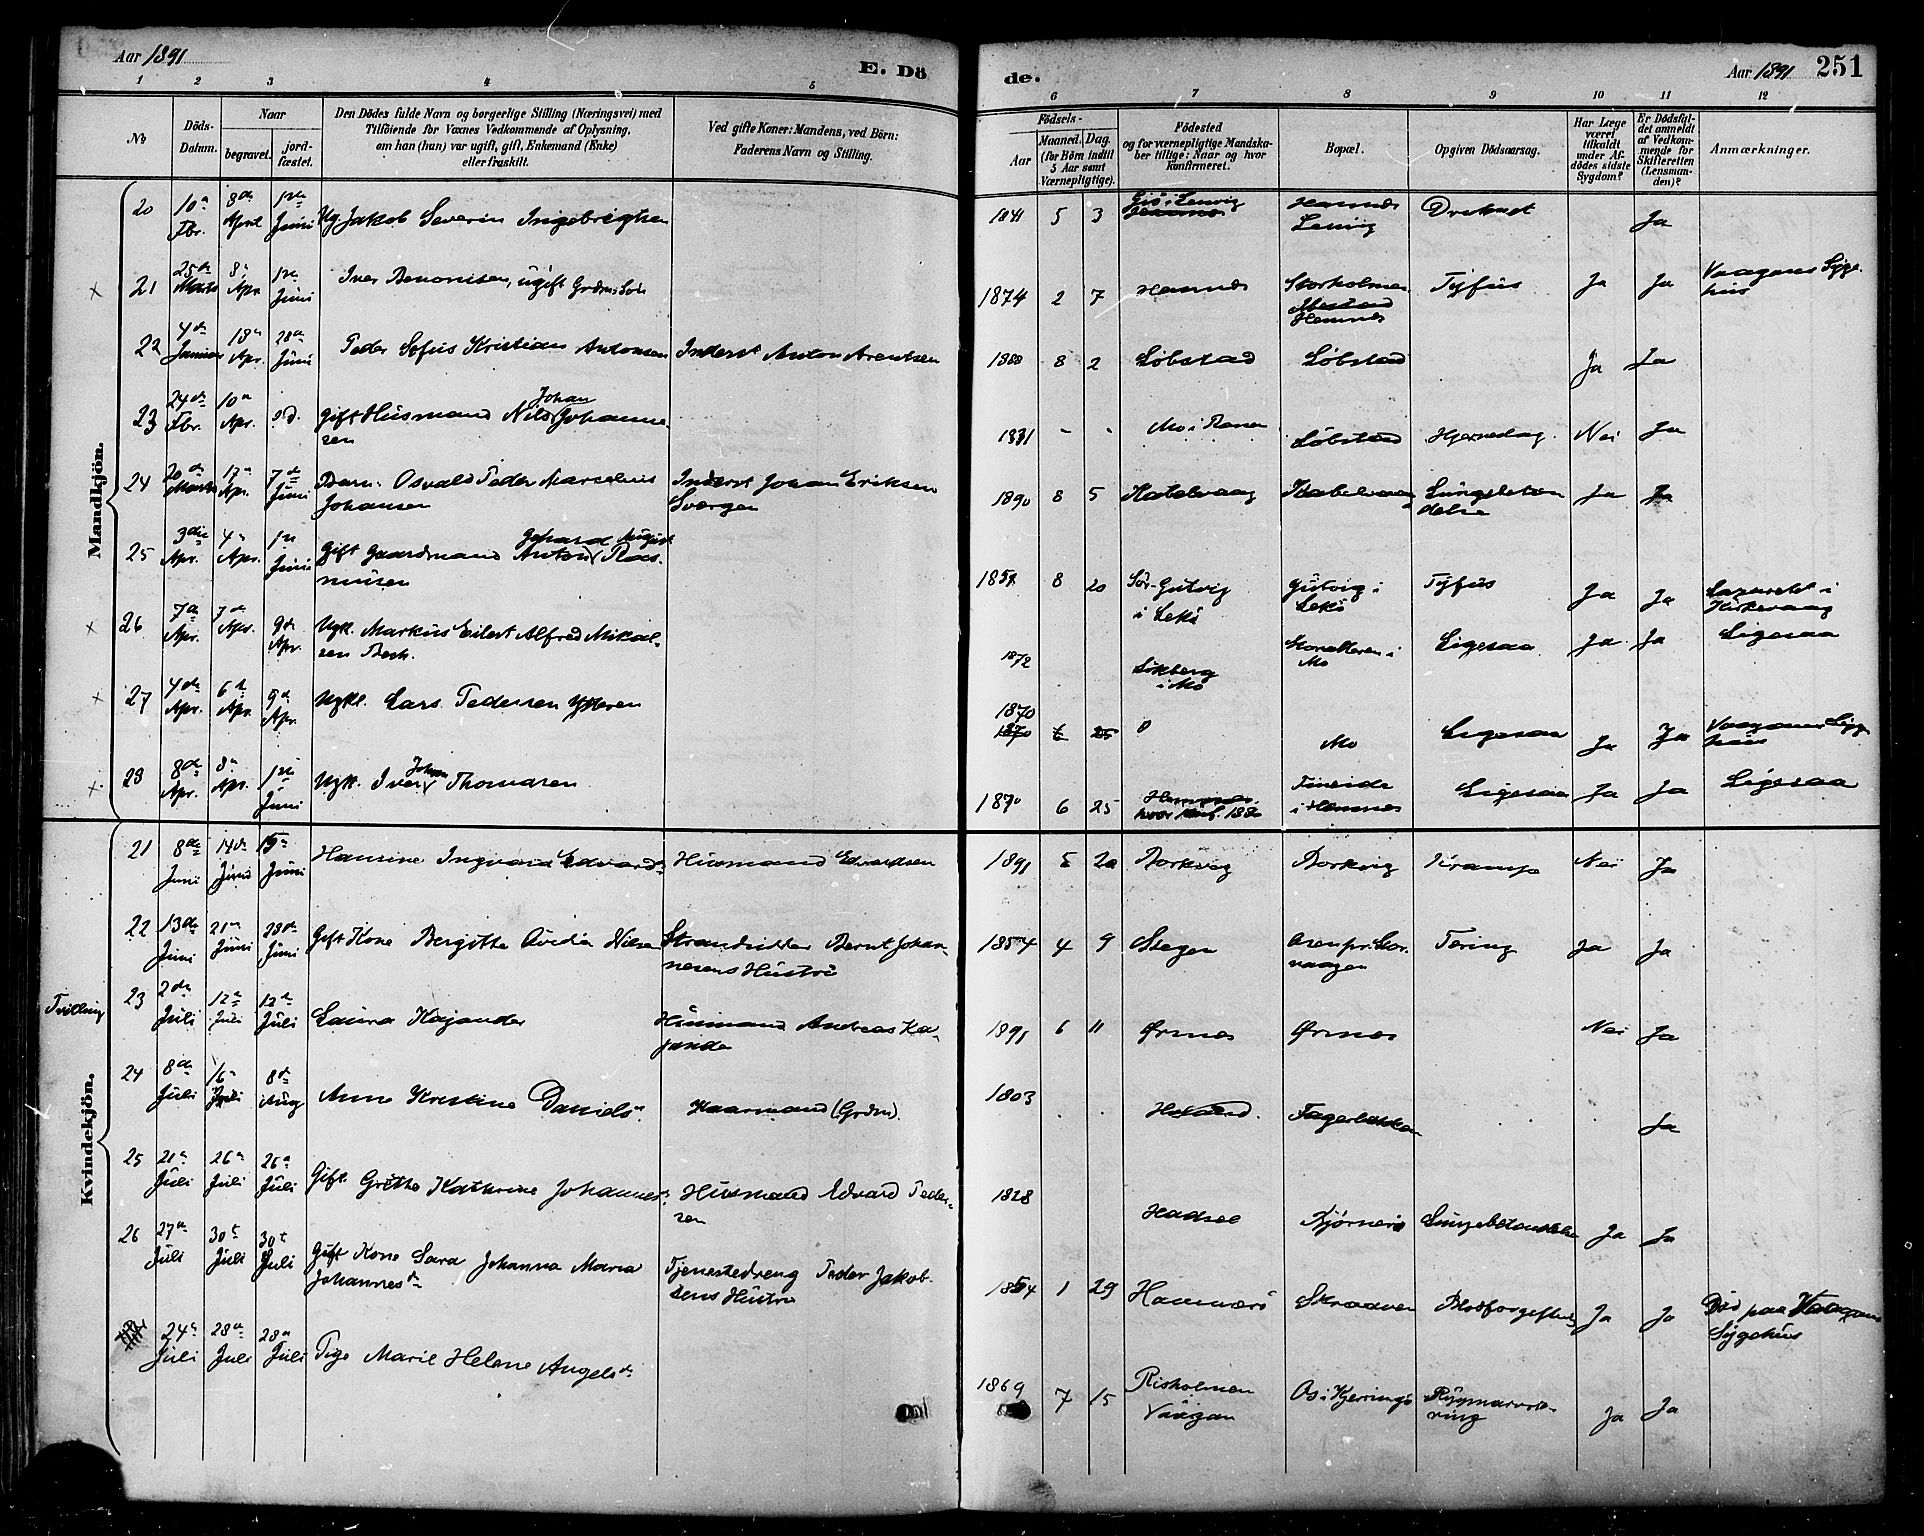 Aar 1891
E. Dö
de.
Aar 1891
251
1 2 3 4 5 6 7 8 9 10 11 12
No
Döds-Datum.
Naar
begravet.
jordfæstet.
Den Dödes fulde Navn og borgerlige Stilling (Næringsvei) med
Tilföiende for Voxnes Vedkommende af Oplysning,
om han (hun) var ugift, gift, Enkemand (Enke)
eller fraskilt.
Ved gifte Koner: Mandens, ved Börn:
Faderens Navn og Stilling.
Födsels-
Aar
Maaned. Dag.
(for Börn indtil
5 Aar samt
Værnepligtige).
Födested
og for værnepligtige Mandskaber tillige: Naar og hvor
Konfirmeret.
Bopæl.
Opgiven Dödsaarsag.
Har Læge
været
tilkaldt
under Afdödes sidste
Sygdom?
Er Dödsfaldet anmeldt
af Vedkommende for
Skifteretten
(Lensmanden)?
Anmærkninger.
Mandkjön.
20 10de Fbr. 8de April 1ste Juni Ug. Jakob Severin Ingebrigtsen 1841 5 3 Gis i Lenvig Lenvig Druknet Ja
21 25de Marts 8de Apr. 1ste Juni Iver Benonisen, ugift Grdm. Søn 1874 2 7 Hemnes Storholmen Hemnes Tyfus Ja Ja Vaagenes Sygehus
22 4de Januar 18de Apr. 28de Juni Peder Sofus Kristian Antonsen Inderst Anton Arentsen 1888 8 2 Løbstad Løbstad Ja Ja
23 24de Fbr. 10de Apr. s.d. Gift Husmand Nils Johan Johannesen 1831 - - Mo i Ranen Løbstad Hjerneslag. Nei Ja
24 20de Marts 12te Apr. 7de Juni Barn: Osvald Peder Marselius Johansen Inderst Johan Eriksen Sværgen 1890 8 5 Kabelvaag Kabelvaag Lungebetændelse Ja Ja
25 3die Apr. 4de Apr. 1ste Juni Gift Gaardmand Anton Gerhard August Rasmusen 1857 8 20 Sør-Gutvig i Lekø Gutvig i Lekø Tyfus Ja Ja Lazarettet i Kirkevaag
26 7de Apr. 7de Apr. 9de Apr. Ugk. Markus Eilert Alfred Mikalsen Bech. 1872 Løkberg i Mo Mo Ligesaa Ja Ja Ligesaa
27 4de Apr. 6te Apr. 9de Apr. Ugkl. Lars Pedersen Ytteren 1870 Mo Ligesaa Ja Ja Vaagenes Sygehus
28 8de Apr. 8de Apr. 1ste Juni Ugk. Iver Johan Thomasen 1870 6 25 Hemnes. hvor konf. 188 Fineide i Hemnes Ligesaa Ja Ja Ligesaa
Kvindekjön.
21 8de Juni 14de Juni 15de Juni Hansine Ingvarda Edvardsd. Husmand Edvardsen 1891 5 20 Borkvig Borkvig Krampe Nei Ja
22 13de Juni 21de Juni 28de Juni Gift Kone Bergitte Ovidia Nilsen Strandsidder Bernt Johannesens Hustru 1854 4 9 Steger Tæring Ja Ja
Tvilling
23 2den Juli 12te Juli 12te Juli Laura Kajander Husmand Andreas Kajander 1891 6 11 Ørsnes Ørsnes Nei Ja
24 8de Juli 16de Juli 8de Aug Anne Kristine Danielsd. Kaarmand (Grdm). 1803 Fagerbakken Ja
25 21de Juli 26de Juli 26de Juli Gift. Grethe Kathrine Johannesd. Husmand Edvard Pedersen 1828 Hadsel Bjørnerø Lungebetændelse Ja Ja
26 27de Juli 30te Juli 30te Juli Gift Kone Sara Johanna Maria Johannesdr. Tjenestedreng Peder Jakobsens Hustru 1854 1 29 Hammerø Skraaven Blodforgiftning Ja Ja Død paa Vaagenes Sygehus
24de Juli 28de Juli 28de Juli Pige Marie Helene Angelsdr. 1869 7 15 Risholmen Vaagan Os i Kjerringø Rygmarvstæring Ja Ja